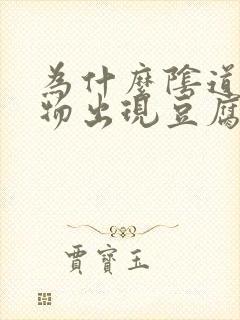 為什麼陰道
物出現豆腐
賈寶玉